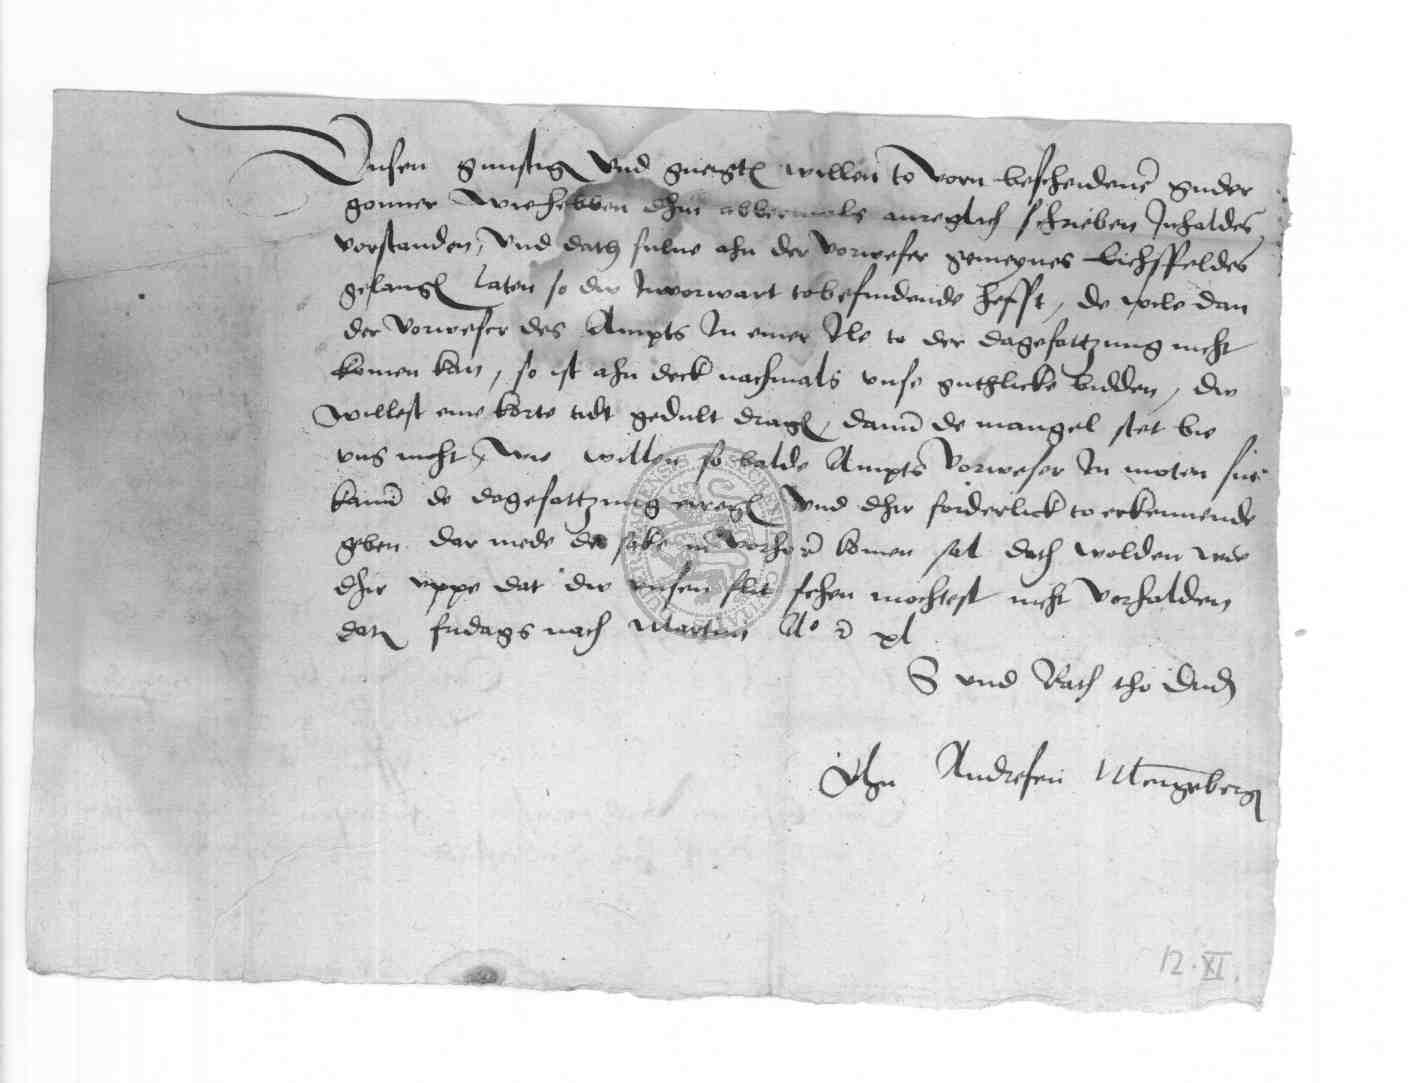 Unsen gunstig und gneigt willen to vorn bescheidener guder
gonner wie hebben dhin abbermals anreglich schrieben Inhaldes
vorstanden, und dath sulve ahn der vorweser gemeynes Eichsffeldes
gelang laten so die Inworwart tobefindende hefft, de wile dan
der vorweser des Ampts In einer Ile to der dagesattzung nicht
komen kan, so ist ahn deck nachmals unse guthlicke bidden, die
willest eine korte tidt gedult dragen, dann de mangel stet bie
uns nicht, wie willen so balde Ampts vorweser In
kann de dagesattzung und dhir forderlick to erkennende
geben dar mede de sake in vorhor komen sal dath wolden wie
dhir uppe dat die unsen flit sehen mochtest nicht vorhalden
dat fridags nach Martini Ao xl
S und Rath tho Dud
Ahn Andresen Mengeberg
12.XI.